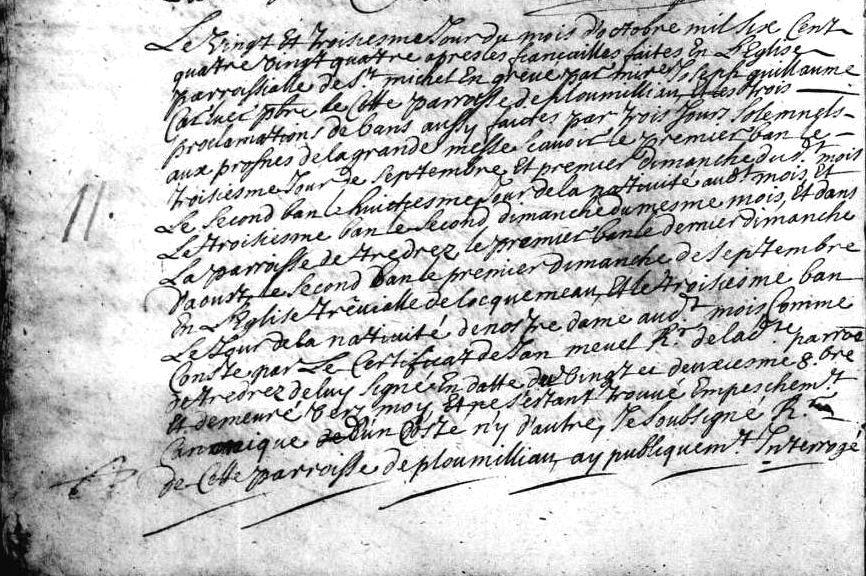 Le vingt et troisiesme Jour du mois d'octobre mil six Cent
quatre vingt quatre apres les fiancailles faites En L'Eglise
parroissialle de St michel En greve par mire Joseph guillaume
pbre de Cette parroisse de ploumilliau, et les trois
proclamations de bans aussy faictes par trois Jours solemnels
aux prosnes de la grande messe scavoir le premier ban le
troisiesme Jour de septembre, Et premier dimanche du dt mois
Le second ban le huictiesme Jour de la nativité audt mois, Et
Le troisiesme ban le second dimanche du mesme mois, Et dans
La parroisse de tredrez le premier ban le dernier dimanche
D'aoust, le second ban le premier dimanche de septembre
En L'Eglise trêvialle de locquemeau, Et le troisiesme ban
Le Jour de la nativité de nostre dame audt mois Comme
Conste par Le Certificat de Jan mevel Rr de la dte parroe
de tredrez de luy signé En datte du vingt et deuxiesme 8.bre
Et demeuré vers moy, Et ne s'estant trouvé Empeschemt
Canonique d'un Costé n'y d'autre, Je soubsigné Rr
de Cette parroisse de ploumilliau, ay publiquemt Interrogé
11.